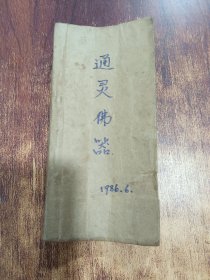 通灵佛器
1986.6.